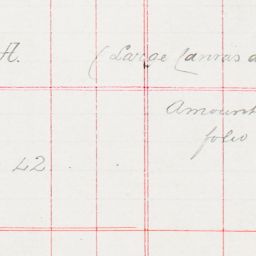 A. (Large Canvas a
Amount
folio
42